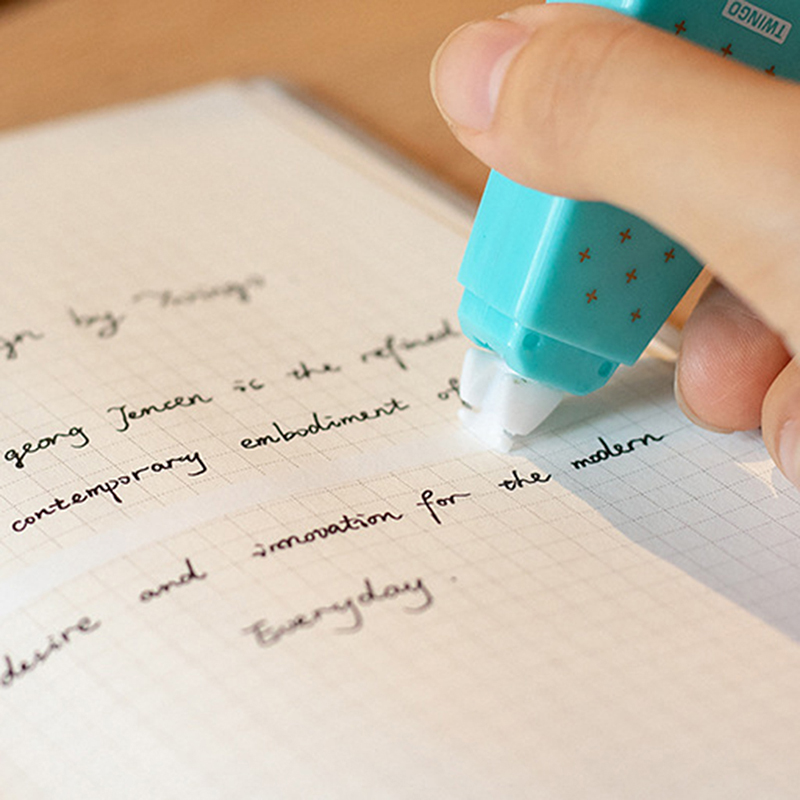 TWINGO
by Twingo
georg Jencen is the refined
contemporary embodiment of
and innovation for the modern
desire Everyday.